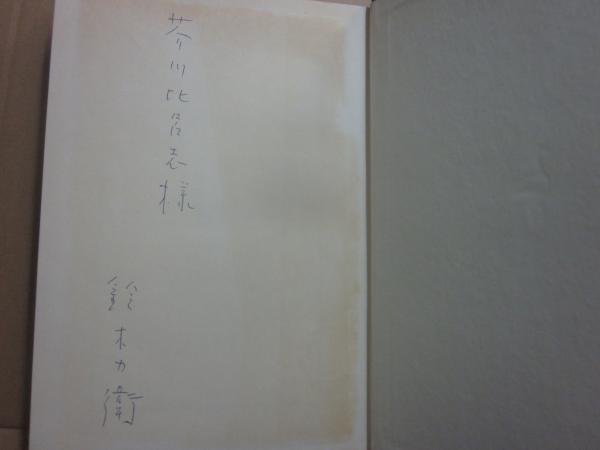 芥川比呂志様
鈴木力衛